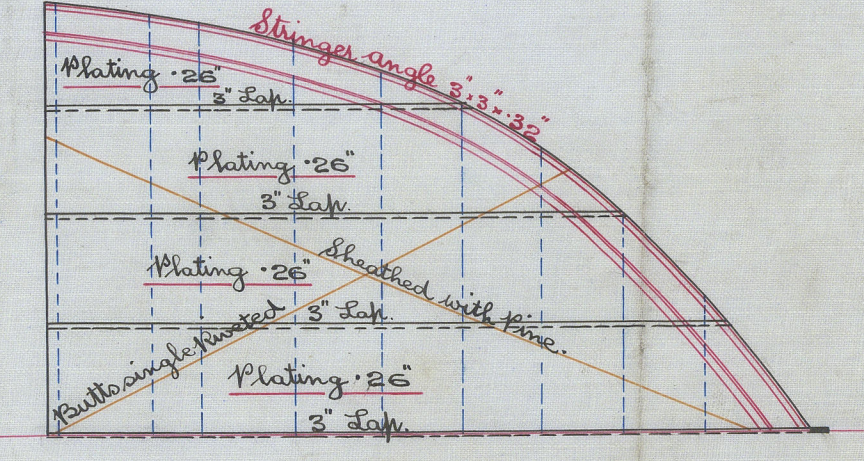 Stringer angle 3" × 3" × ·32"
Plating ·26"
3" Lap.
Plating ·26"
3" Lap.
Plating ·26"
Sheathed with Pine.
3" Lap.
Butts single Riveted
Plating ·26"
3" Lap.